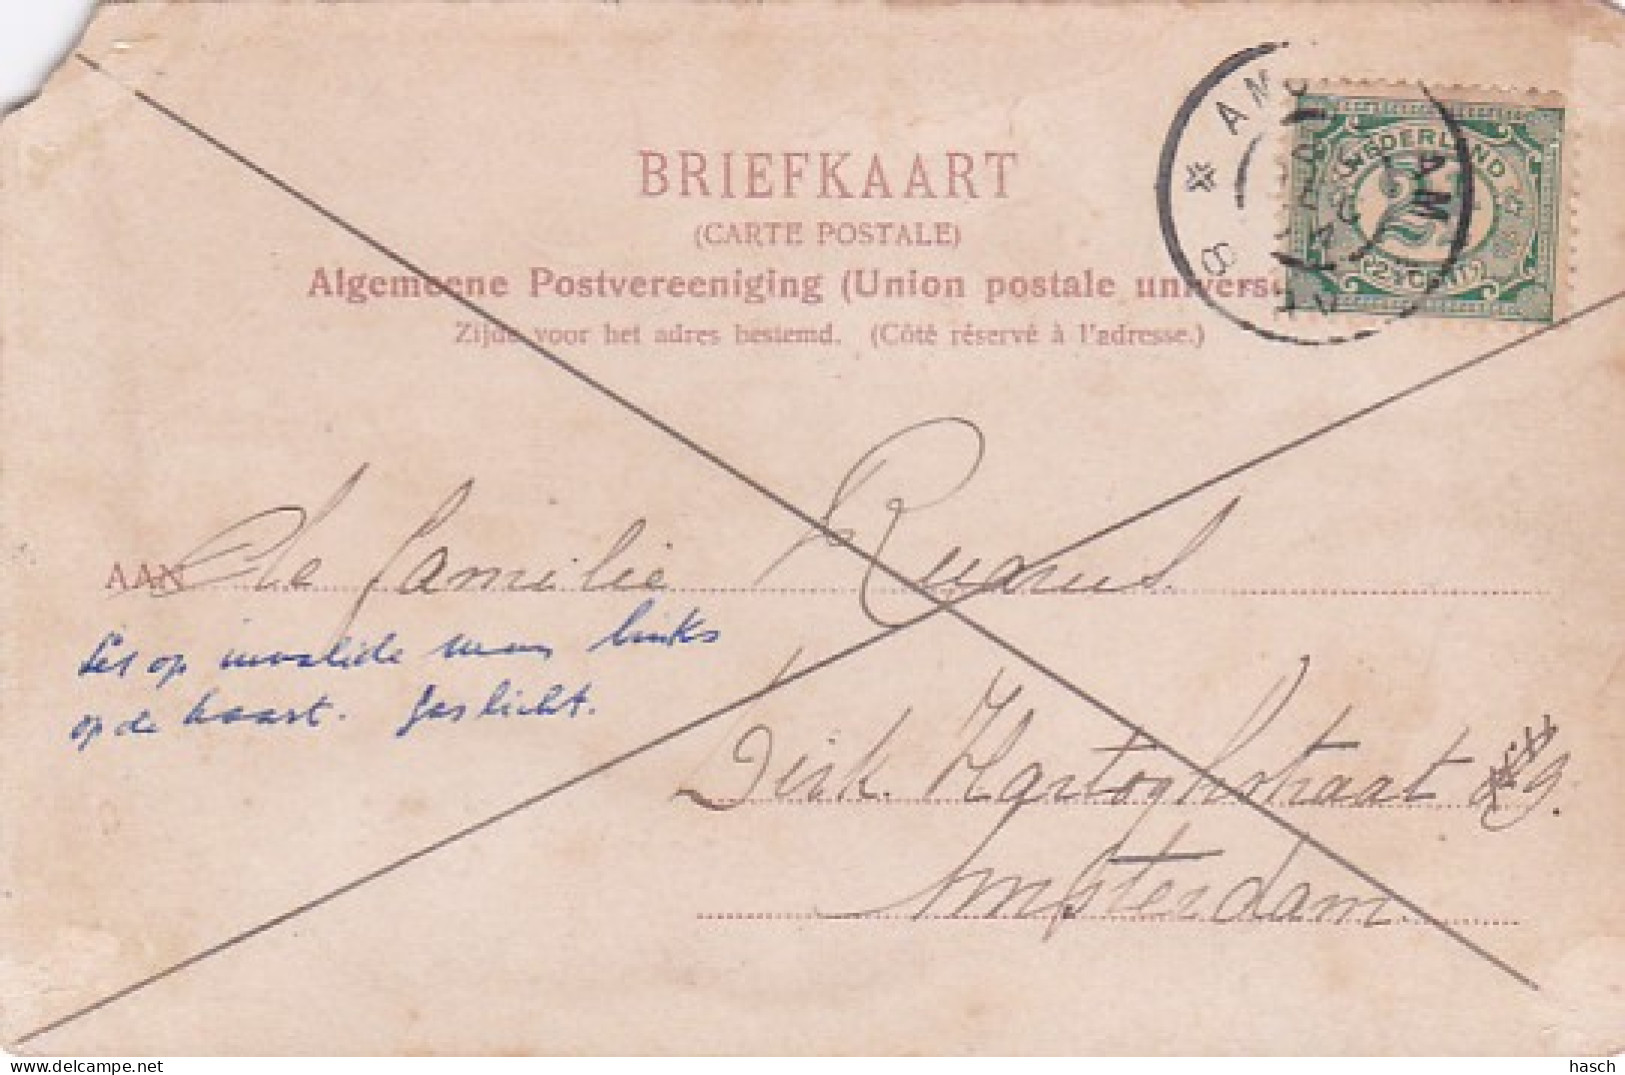 BRIEFKAART
(CARTE POSTALE)
Algemeene Postvereeniging (Union postale univers
Zijde voor het adres bestemd. (Côté réservé à l'adresse.)
NEDERLAND
2½
2½ CENT
AM
8
AAN de familie
Let op invalide man links
op de kaart. Gaslicht.
Dirk Hartoghstraat
Amsterdam.
hasch